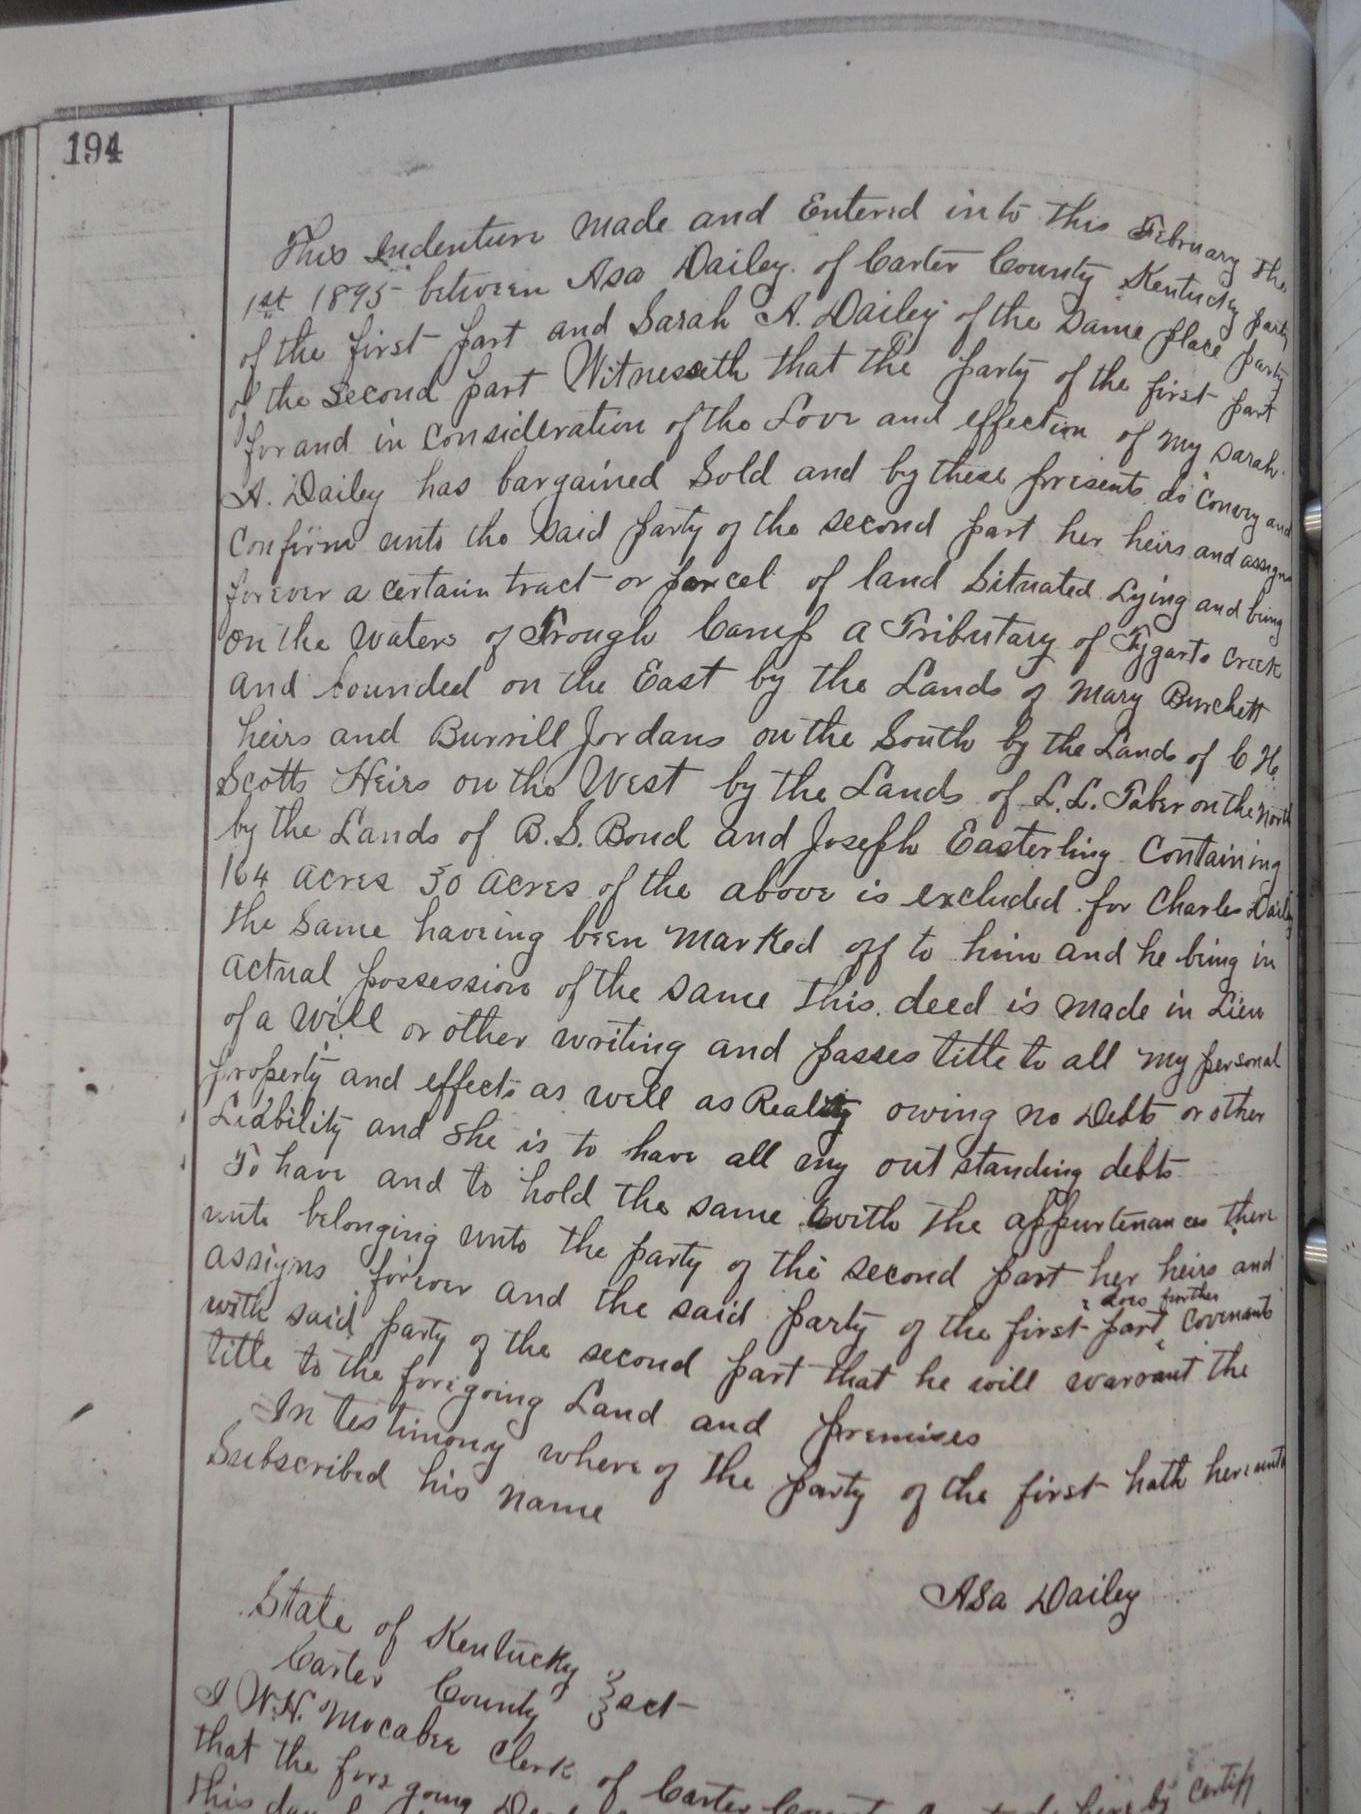 194
This Indenture made and Entered into this February the
1st 1895 between Asa Dailey of Carter County Kentucky party
of the first part and Sarah A. Dailey of the Same place party
of the second part Witnesseth that the party of the first part
for and in consideration of the Love and effection of my Sarah
A. Dailey has bargained Sold and by these presents do convey and
confirm unto the said party of the second part her heirs and assigns
forever a certain tract or parcel of land Situated Lying and being
on the waters of Trough Camp a Tributary of Tygarts Creek
and bounded on the East by the Lands of Mary Burchett
heirs and Burrill Jordans on the South by the Lands of C H.
Scotts Heirs on the West by the Lands of L.L. Taber on the North
by the Lands of B.S. Bond and Joseph Easterling Containing
164 acres 30 acres of the above is excluded for Charles Dailey
the Same having been marked off to him and he being in
actual possession of the same this deed is made in Lieu
of a will or other writing and passes title to all my personal
property and effects as well as Reality owing no Debts or other
Liability and she is to have all my out standing debts
To have and to hold the same with the appurtenances there
unto belonging unto the party of the second part her heirs and
assigns forever and the said party of the first part does further covenants
with said party of the second part that he will warrant the
title to the foregoing Land and premises
In testimony where of the party of the first hath hereunto
Subscribed his name
Asa Dailey
State of Kentucky
Carter County } sct
I W.H. McCabee Clerk of Carter County hereby certify
that the fore going Deed
this day